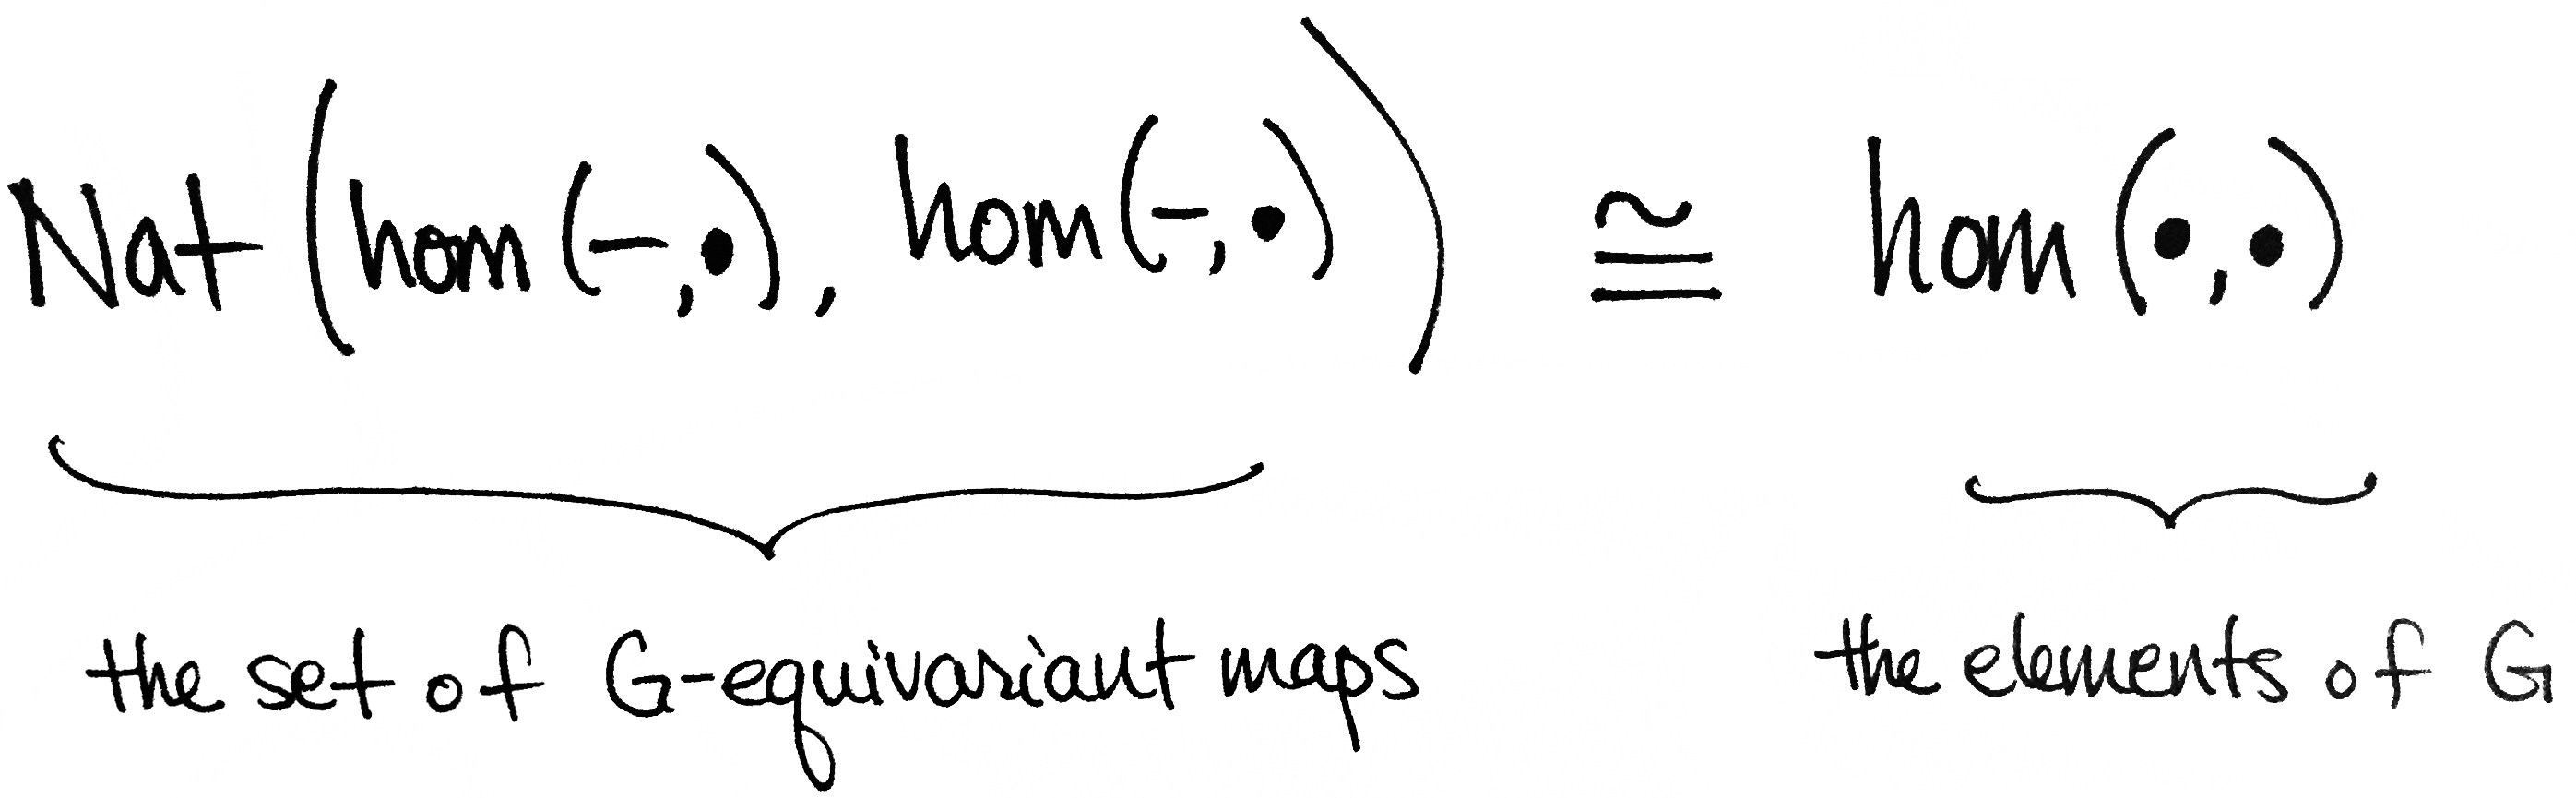 Nat (hom (–, •), hom(–, •)) ≅ hom (•, •)
the set of G-equivariant maps the elements of G